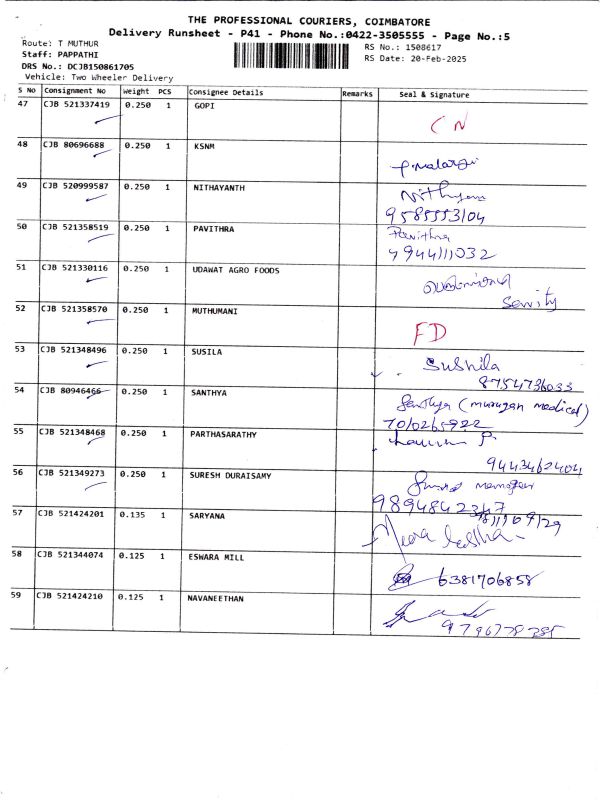 THE PROFESSIONAL COURIERS, COIMBATORE
Delivery Runsheet - P41 - Phone No.:0422-3505555 - Page No.:5
Route: T MUTHUR
RS No.: 1508617
Staff: PAPPATHI
RS Date: 20-Feb-2025
DRS No.: DCJB150861705
Vehicle: Two Wheeler Delivery
S No Consignment No Weight PCS Consignee Details Remarks Seal & Signature
47 CJB 521337419 0.250 1 GOPI
CN
48 CJB 80696688 0.250 1 KSNM
P.Malargi
49 CJB 520999587 0.250 1 NITHAYANTH
50 CJB 521358519 0.250 1 PAVITHRA
Pavithra
9944111032
51 CJB 521330116 0.250 1 UDAWAT AGRO FOODS
52 CJB 521358570 0.250 1 MUTHUMANI
FD
53 CJB 521348496 0.250 1 SUSILA
Sushila
8754736033
54 CJB 80946466 0.250 1 SANTHYA
Santhya (murugan medical)
7010265922
55 CJB 521348468 0.250 1 PARTHASARATHY
P.
9443462404
56 CJB 521349273 0.250 1 SURESH DURAISAMY
57 CJB 521424201 0.135 1 SARYANA
58 CJB 521344074 0.125 1 ESWARA MILL
6381706858
59 CJB 521424210 0.125 1 NAVANEETHAN